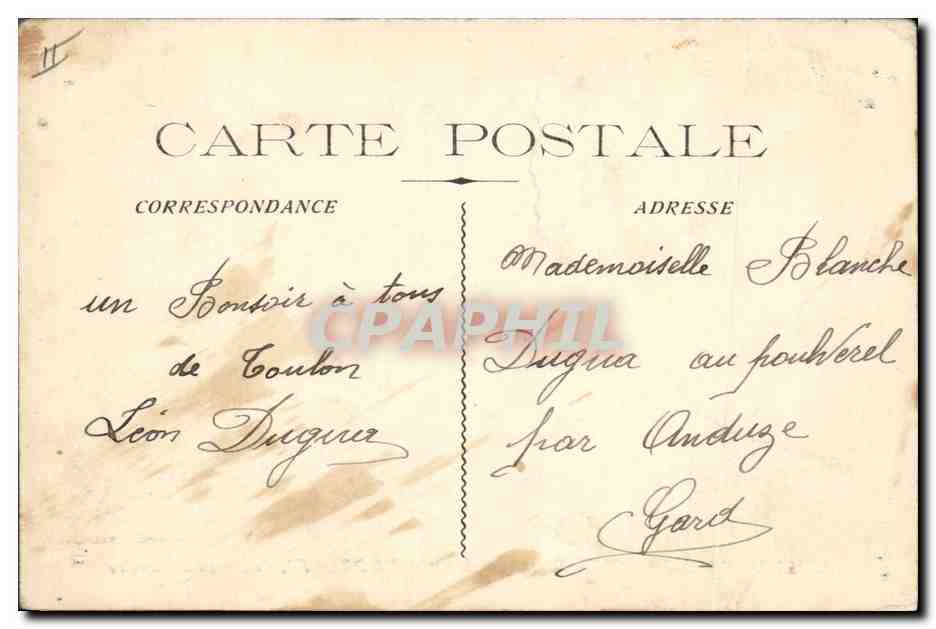 II
CARTE POSTALE
CORRESPONDANCE
un Bonsoir à tous
de Toulon
Léon Dugua
ADRESSE
Mademoiselle Blanche
Dugua au poulverel
par Anduze
Gard
CPAPHIL